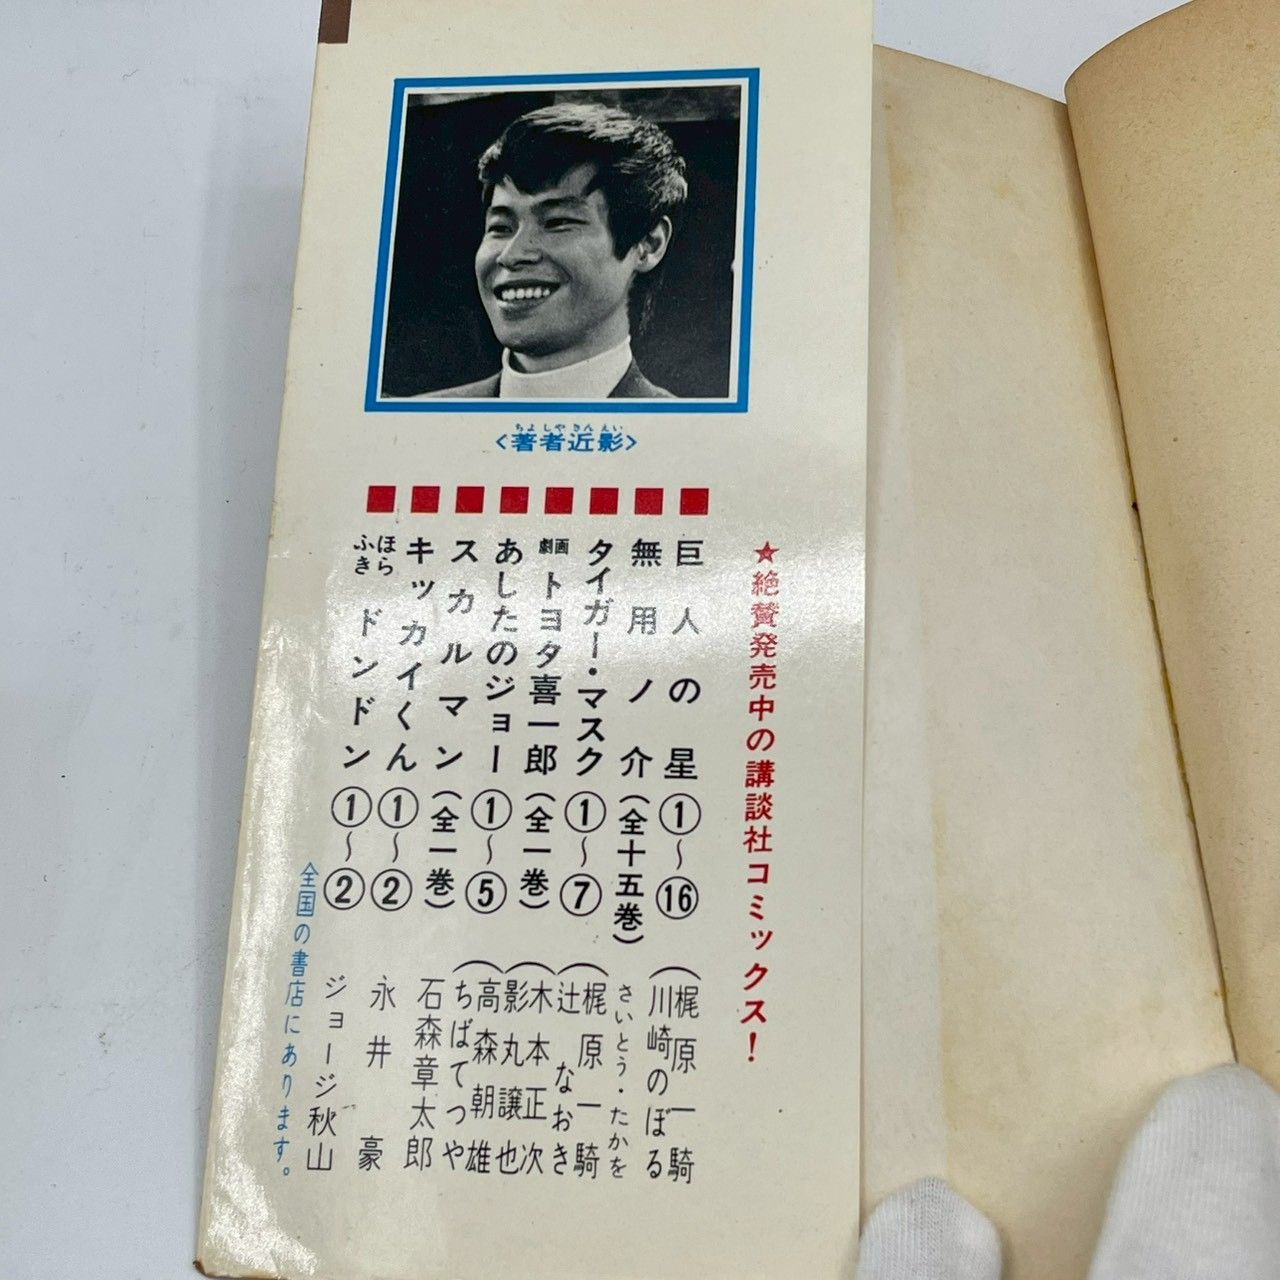 <著者近影>
ちょしゃきんえい
★絶賛発売中の講談社コミックス!
■巨人の星①〜⑯(梶原一騎 川崎のぼる
■無用ノ介(全十五巻)さいとう・たかを
■タイガー・マスク①〜⑦(梶原一騎 辻なおき
■劇画トヨタ喜一郎(全一巻)(木本正次 影丸譲也
■あしたのジョー①〜⑤(高森朝雄 ちばてつや
■スカルマン(全一巻)石森章太郎
■キッカイくん①〜②永井豪
■ほらふきドンドン①〜②ジョージ秋山
全国の書店にあります。